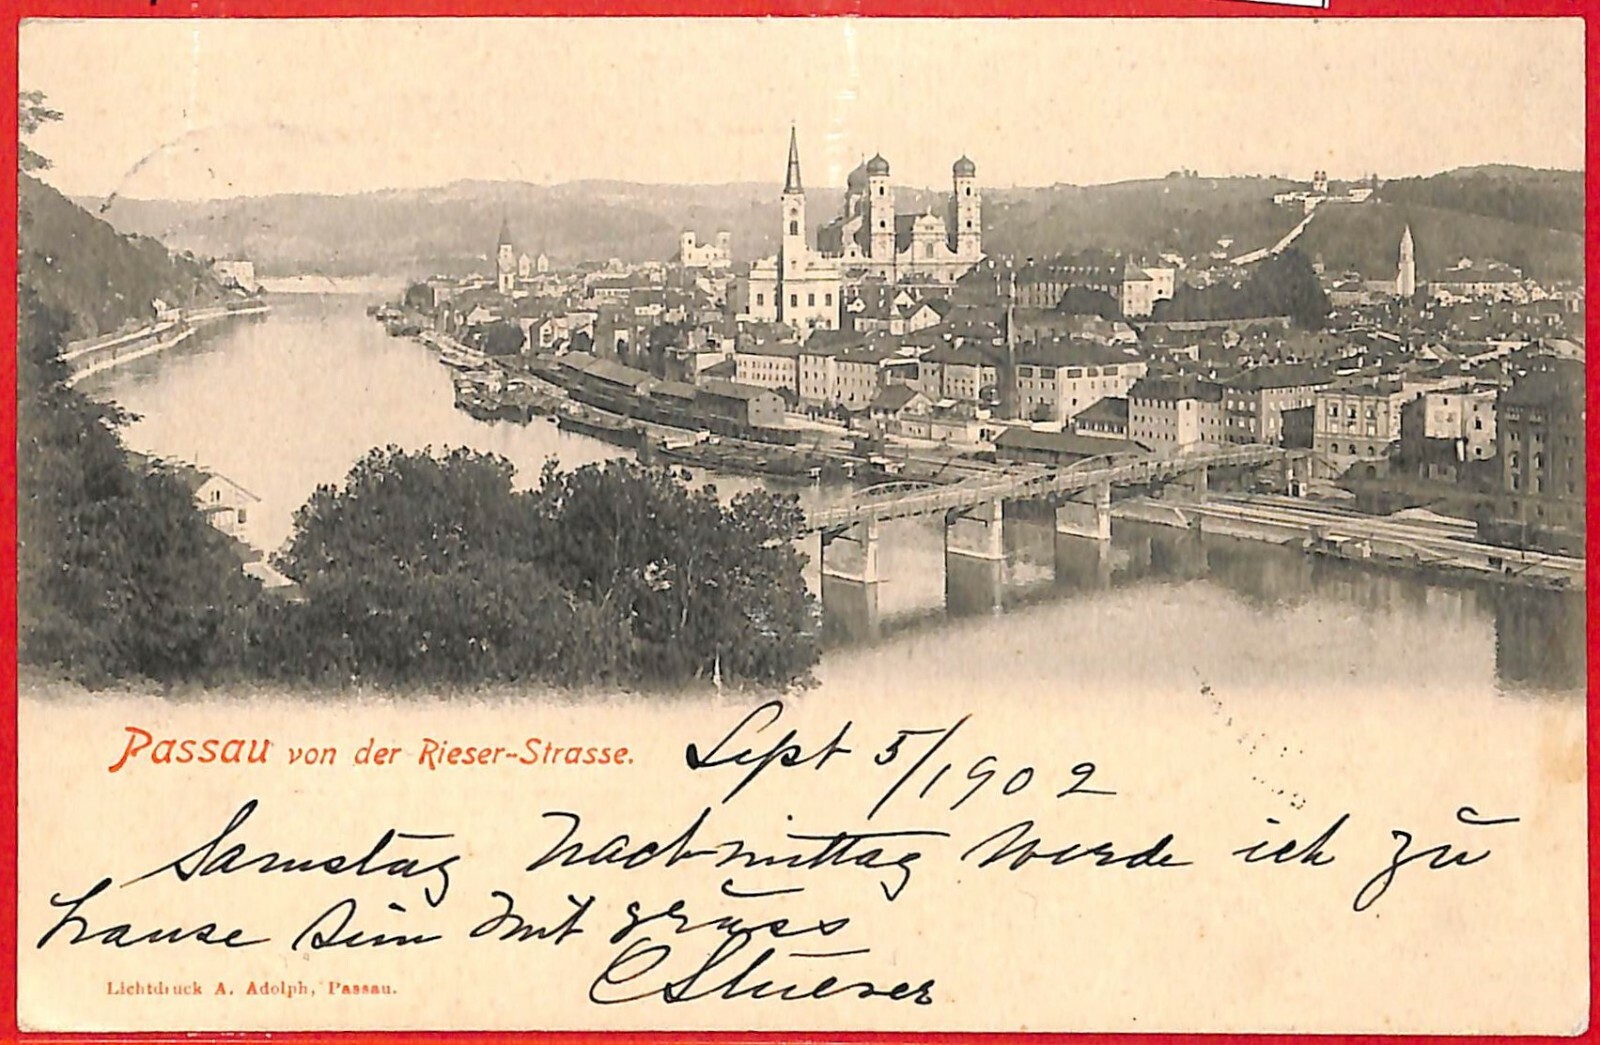 Passau von der Rieser-Strasse.
Sept 5/1902
Samstag Nachmittag werde ich zu
hause sein mit gruss
C Stuever
Lichtdruck A. Adolph, Passau.